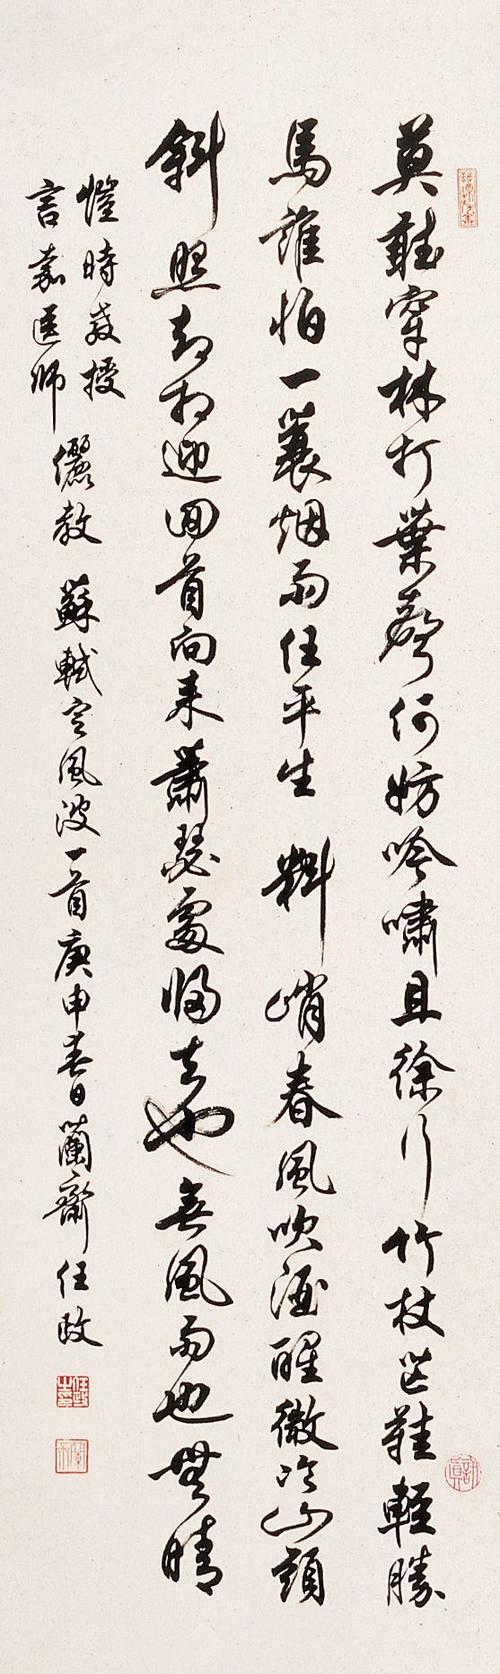 莫聽穿林打葉聲何妨吟嘯且徐行竹杖芒鞋輕勝
馬誰怕一蓑烟雨任平生 料峭春風吹酒醒微冷山頭
斜照却相迎回首向來蕭瑟處歸去也無風雨也無晴
愷時教授
言嘉医師
儷教 蘇軾定風波一首庚申春日蘭齋任政
任政之印